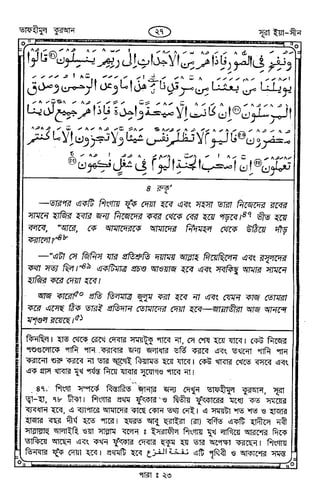 তাফহীমুল কুরআন
২৭
সূরা ইয়া-সীন
وَنُفِخَ فِي الصُّوْرِ فَاِذَا هُمْ مِّنَ الْاَجْدَاثِ اِلٰى رَبِّهِمْ يَنْسِلُوْنَ ﴿٥١﴾ قَالُوْا
يٰوَيْلَنَا مَنْ بَعَثَنَا مِنْ مَّرْقَدِنَا هٰذَا مَا وَعَدَ الرَّحْمٰنُ وَصَدَقَ
الْمُرْسَلُوْنَ ﴿٥٢﴾ اِنْ كَانَتْ اِلَّا صَيْحَةً وَّاحِدَةً فَاِذَا هُمْ جَمِيْعٌ لَّدَيْنَا
مُحْضَرُوْنَ ﴿٥٣﴾ فَالْيَوْمَ لَا تُظْلَمُ نَفْسٌ شَيْئًا وَّلَا تُجْزَوْنَ اِلَّا مَا كُنْتُمْ
تَعْمَلُوْنَ ﴿٥٤﴾ اِنَّ اَصْحٰبَ الْجَنَّةِ الْيَوْمَ فِيْ شُغُلٍ فٰكِهُوْنَ ﴿٥٥﴾
৪ রুকূ'
—তারপর একটি শিংগায় ফুঁক দেয়া হবে এবং সহসা তারা নিজেদের রবের
সামনে হাজির হবার জন্য নিজেদের কবর থেকে বের হয়ে পড়বে।৪৭ ভীত হয়ে
বলবে, "আরে, কে আমাদেরকে আমাদের নিঁদমহল থেকে উঠিয়ে দাঁড়
করালো?"৪৮
—"এটা সে জিনিস যার প্রতিশ্রুতি দয়াময় আল্লাহ দিয়েছিলেন এবং রসূলদের
কথা সত্য ছিল।"৪৯ একটিমাত্র প্রচণ্ড আওয়াজ হবে এবং সবকিছু আমার সামনে
হাজির করে দেয়া হবে।
আজ কারো৫০ প্রতি তিলমাত্র জুলুম করা হবে না এবং যেমন কাজ তোমরা
করে এসেছ ঠিক তারই প্রতিদান তোমাদের দেয়া হবে—জান্নাতীরা আজ আনন্দে
মশগুল রয়েছে।৫১
কিনছিল। হাত থেকে রেখে দেবার সময়টুকু পাবে না, সে শেষ হয়ে যাবে। কেউ নিজের
পশুগুলোকে পানি পান করাবার জন্য জলাধার ভর্তি করবে এবং তখনো পানি পান
করানো শুরু করবে না তার আগেই কিয়ামত হয়ে যাবে। কেউ খাবার খেতে বসবে এবং
এক গ্রাস খাবার মুখ পর্যন্ত নিয়ে যাবার সুযোগও পাবে না।
৪৭. শিংগা সম্পর্কে বিস্তারিত জানার জন্য দেখুন তাফহীমুল কুরআন, সূরা
ত্বা-হা, ৭৮ টীকা। শিংগার প্রথম ফুৎকার ও দ্বিতীয় ফুৎকারের মধ্যে কত সময়ের
ব্যবধান হবে, এ ব্যাপারে আমাদের কাছে কোন তথ্য নেই। এ সময়টা শত শত ও হাজার
হাজার বছর দীর্ঘ হতে পারে। হযরত আবু হুরাইরা (রা) বর্ণিত একটি হাদীসে নবী
সাল্লাল্লাহু আলাইহি ওয়া সাল্লাম বলেন : ইসরাফীল শিংগায় মুখ লাগিয়ে আরশের দিকে
তাকিয়ে আছেন এবং কখন ফুৎকার দেবার হুকুম হয় তার অপেক্ষা করছেন। শিংগায়
তিনবার ফুঁক দেয়া হবে। প্রথমটি হবে نفخة الفزع এটি পৃথিবী ও আকাশের সমস্ত
পারা : ২৩